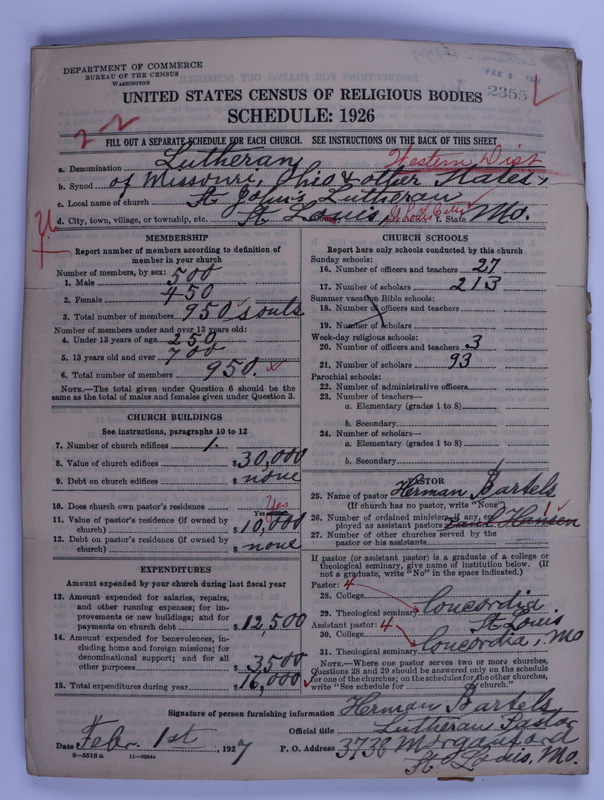 DEPARTMENT OF COMMERCE
BUREAU OF THE CENSUS
WASHINGTON
FEB 5 1927
2355
UNITED STATES CENSUS OF RELIGIOUS BODIES
SCHEDULE: 1926
2-2
FILL OUT A SEPARATE SCHEDULE FOR EACH CHURCH. SEE INSTRUCTIONS ON THE BACK OF THIS SHEET
a. Denomination Lutheran Western Dist
b. Synod of Missouri, Ohio & other States,
c. Local name of church St John's Lutheran
d. City, town, village, or township, etc. St Louis, St Louis City f. State Mo.
MEMBERSHIP
Report number of members according to definition of
member in your church
Number of members, by sex:
1. Male 500
2. Female 450
3. Total number of members 950 souls
Number of members under and over 13 years old:
4. Under 13 years of age 250
5. 13 years old and over 700
6. Total number of members 950.
NOTE.—The total given under Question 6 should be the
same as the total of males and females given under Question 3.
CHURCH BUILDINGS
See instructions, paragraphs 10 to 12
7. Number of church edifices 1.
8. Value of church edifices $ 30,000
9. Debt on church edifices $ none
10. Does church own pastor's residence Yes
11. Value of pastor's residence (if owned by
church) $ 10,000
12. Debt on pastor's residence (if owned by
church) $ none
EXPENDITURES
Amount expended by your church during last fiscal year
13. Amount expended for salaries, repairs,
and other running expenses; for im-
provements or new buildings; and for
payments on church debt $ 12,500
14. Amount expended for benevolences, in-
cluding home and foreign missions; for
denominational support; and for all
other purposes $ 3500
15. Total expenditures during year $ 16,000
CHURCH SCHOOLS
Report here only schools conducted by this church
Sunday schools:
16. Number of officers and teachers 27
17. Number of scholars 213
Summer vacation Bible schools:
18. Number of officers and teachers
19. Number of scholars
Week-day religious schools:
20. Number of officers and teachers 3
21. Number of scholars 93
Parochial schools:
22. Number of administrative officers
23. Number of teachers—
a. Elementary (grades 1 to 8)
b. Secondary
24. Number of scholars—
a. Elementary (grades 1 to 8)
b. Secondary
PASTOR
25. Name of pastor Herman Bartels
(If church has no pastor, write "None")
26. Number of ordained ministers, if any, em-
ployed as assistant pastors 1
27. Number of other churches served by the
pastor or his assistants
If pastor (or assistant pastor) is a graduate of a college or
theological seminary, give name of institution below. (If
not a graduate, write "No" in the space indicated.)
Pastor: 4
28. College
29. Theological seminary Concordia
St Louis
Assistant pastor: 4
30. College
31. Theological seminary Concordia, Mo
NOTE.—Where one pastor serves two or more churches,
Questions 28 and 29 should be answered only on the schedule
for one of the churches; on the schedules for the other churches,
write "See schedule for church."
Signature of person furnishing information Herman Bartels
Official title Lutheran Pastor
Date Febr. 1st, 1927 P. O. Address 3738 Morganford
St Louis, Mo.